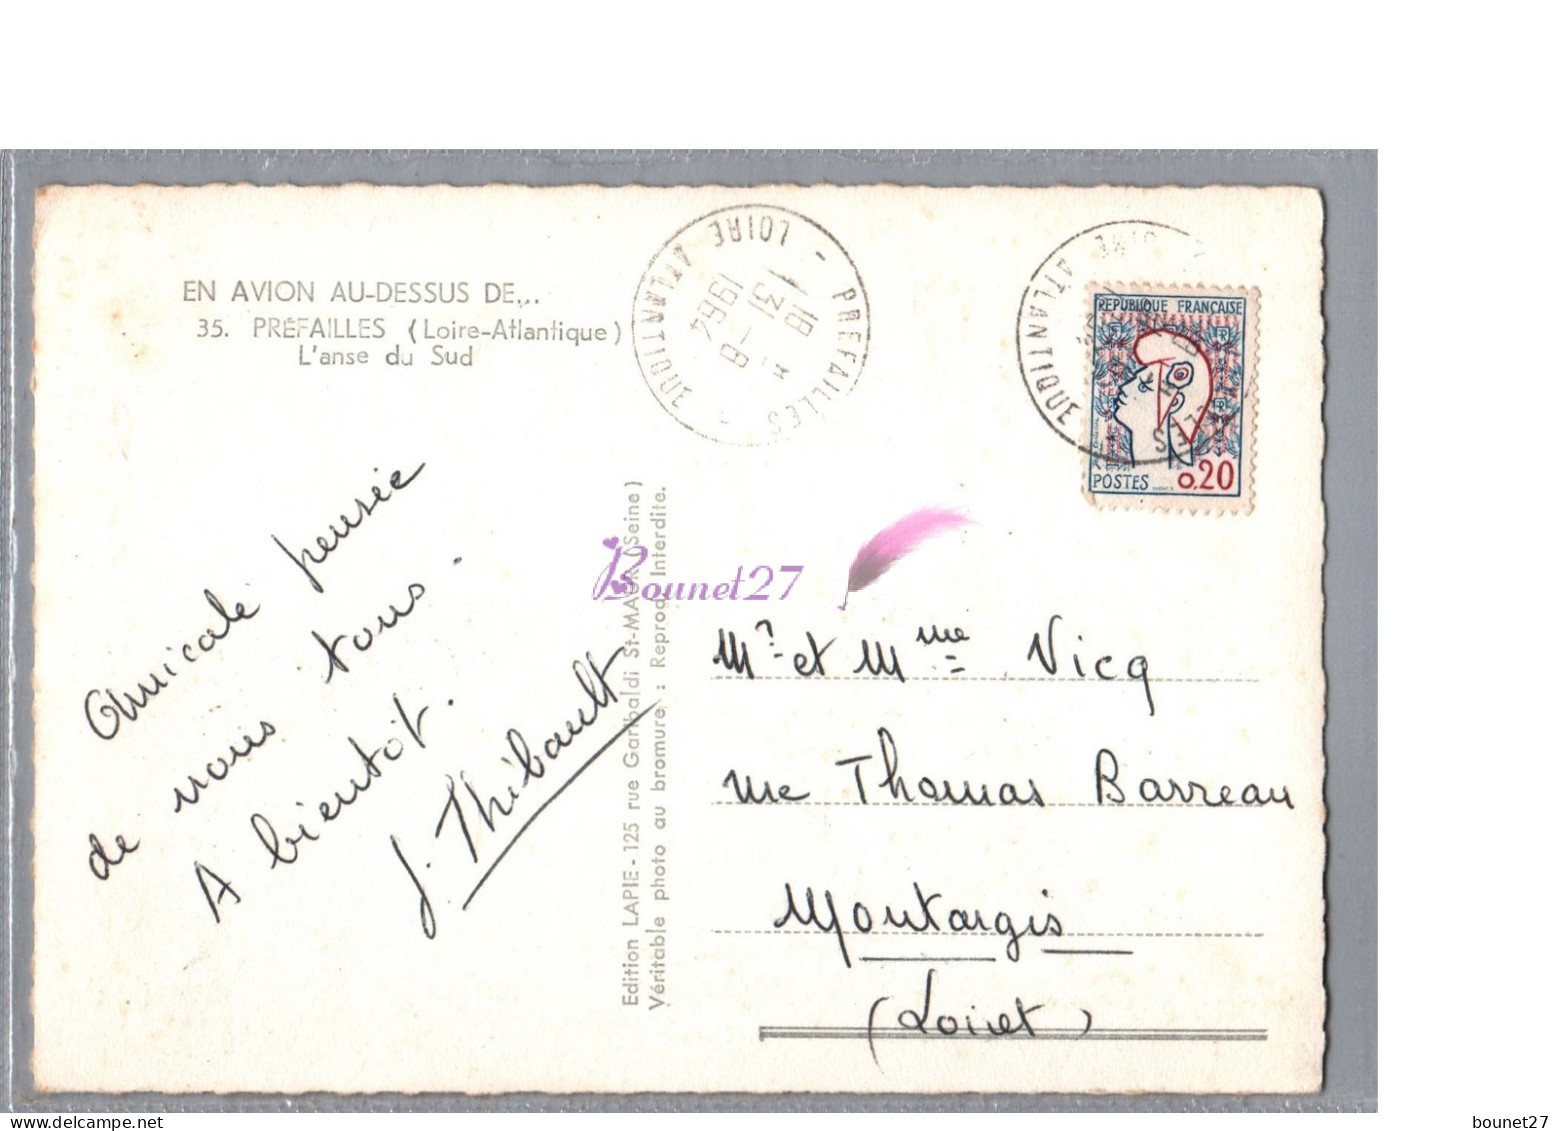 EN AVION AU-DESSUS DE...
35. PRÉFAILLES (Loire-Atlantique)
L'anse du Sud
PREFAILLES
LOIRE ATLANTIQUE
18 H
31 - 8
1964
LOIRE ATLANTIQUE
REPUBLIQUE FRANÇAISE
POSTES 0,20
Amicale pensée
de nous tous.
A bientôt.
J. Thibault
Edition LAPIE - 125 rue Garibaldi St-MAUR (Seine)
Véritable photo au bromure : Reprod. Interdite.
Bounet27
Mr et Mme Vicq
rue Thomas Barreau
Montargis
(Loiret)
bounet27